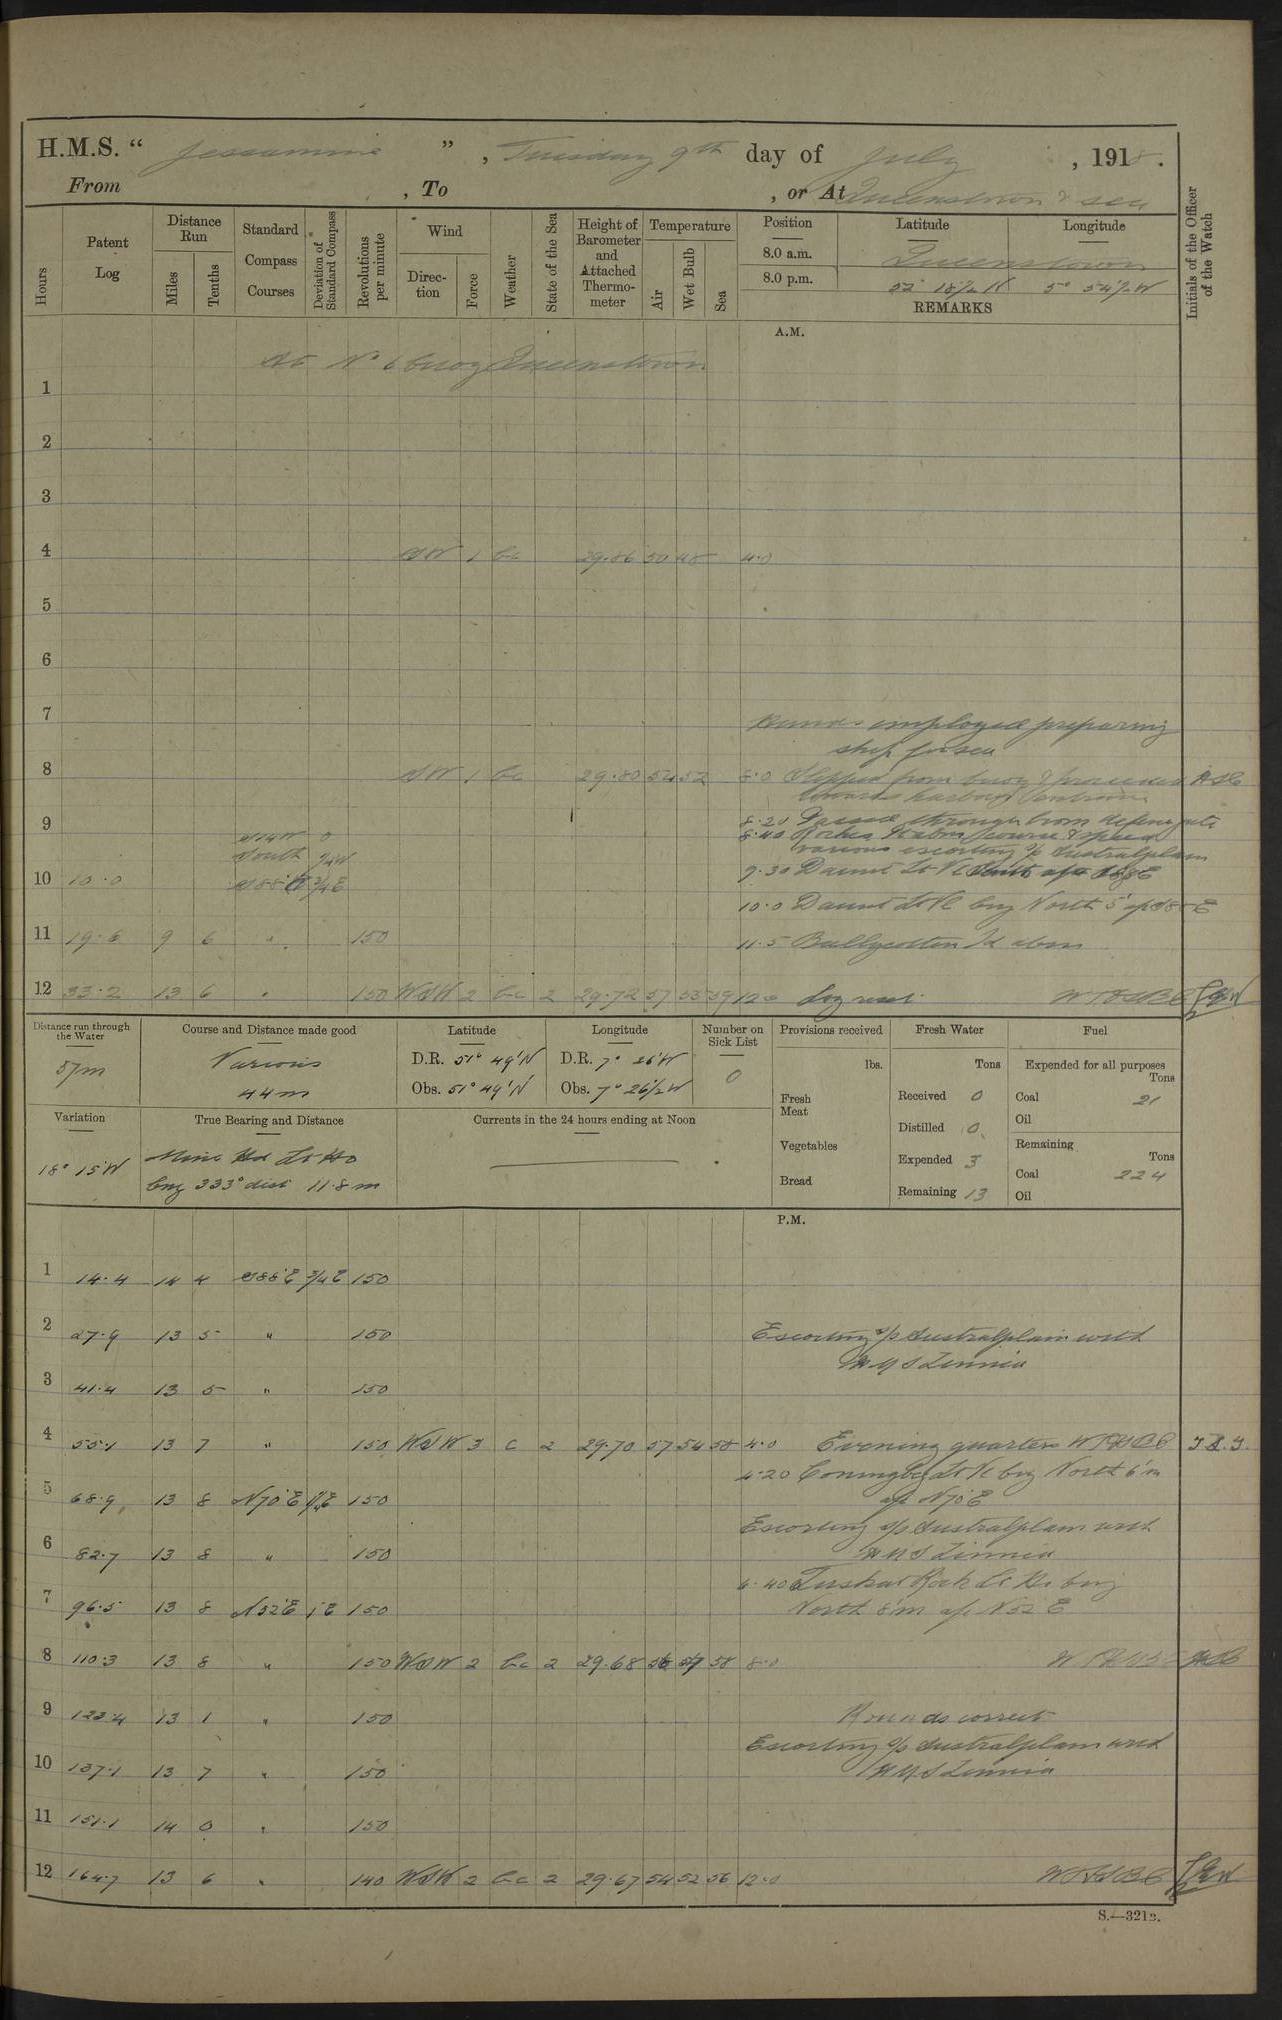 H.M.S. “ Jessamine ” , Tuesday 9th day of July , 1918 .
From , To , or At Queenstown & sea
Hours Patent Log Distance Run Miles Tenths Standard Compass Courses Deviation of Standard Compass Revolutions per minute Wind Direction Force Weather State of the Sea Height of Barometer and Attached Thermometer Temperature Air Wet Bulb Sea Position Latitude Longitude Initials of the Officer of the Watch
8.0 a.m. Queenstown
8.0 p.m. 52° 18½ N 5° 54½ W
REMARKS
A.M.
At No 6 buoy Queenstown
1
2
3
4 SW 1 bc 29.86 50 48 4.0
5
6
7 Hands employed preparing
ship for sea
8 SW 1 bc 29.80 54 52 8.0 Slipped from buoy & proceeded
towards harbour entrance
8.20 Passed through boom defence gate
9 S14W 0 8.40 Roches Pt abm course & speed
South ¼W various escorting s/s Australplain
9.30 Daunt Lt Vl
10 10.0 S88°E ¾E
10.0 Daunt Lt Vl brg North 5' a/c S88E
11 19.6 9 6 " 150 11.5 Ballycotton Id abm
12 33.2 13 6 " 150 WSW 2 bc 2 29.72 57 55 59 12.0 Log reset.
Distance run through the Water Course and Distance made good Latitude Longitude Number on Sick List Provisions received Fresh Water Fuel
57m Various 44m
D.R. 51° 49'N D.R. 7° 26'W 0
Obs. 51° 49'N Obs. 7° 26½W
lbs. Tons Expended for all purposes Tons
Fresh Meat Received 0 Coal 21
Oil
Vegetables Distilled 0 Remaining Tons
Expended 3 Coal 224
Bread Remaining 13 Oil
Variation True Bearing and Distance Currents in the 24 hours ending at Noon
18° 15'W Mine Hd Lt Ho
brg 333° dist 11.8 m
P.M.
1 14.4 14 4 S88°E ¾E 150
2 27.9 13 5 " 150 Escorting s/s Australplain with
HMS Zinnia
3 41.4 13 5 " 150
4 55.1 13 7 " 150 WSW 3 c 2 29.70 57 54 58 4.0 Evening quarters
4.20 Coningbeg Lt Vl brg North 6'm
5 68.9 13 8 N70°E 1¼E 150 a/c N70°E
Escorting s/s Australplain with
6 82.7 13 8 " 150 HMS Zinnia
6.40 Tuskar Rock Lt Ho brg
7 96.5 13 8 N52°E 1E 150 North 8'm a/c N52 E
8 110.3 13 8 " 150 WSW 2 bc 2 29.68 58 8.0
9 123.4 13 1 " 150 Rounds correct
Escorting s/s Australplain with
10 137.1 13 7 " 150 HMS Zinnia
11 151.1 14 0 " 150
12 164.7 13 6 " 140 WSW 2 bc 2 29.67 54 52 56 12.0
S.—321B.